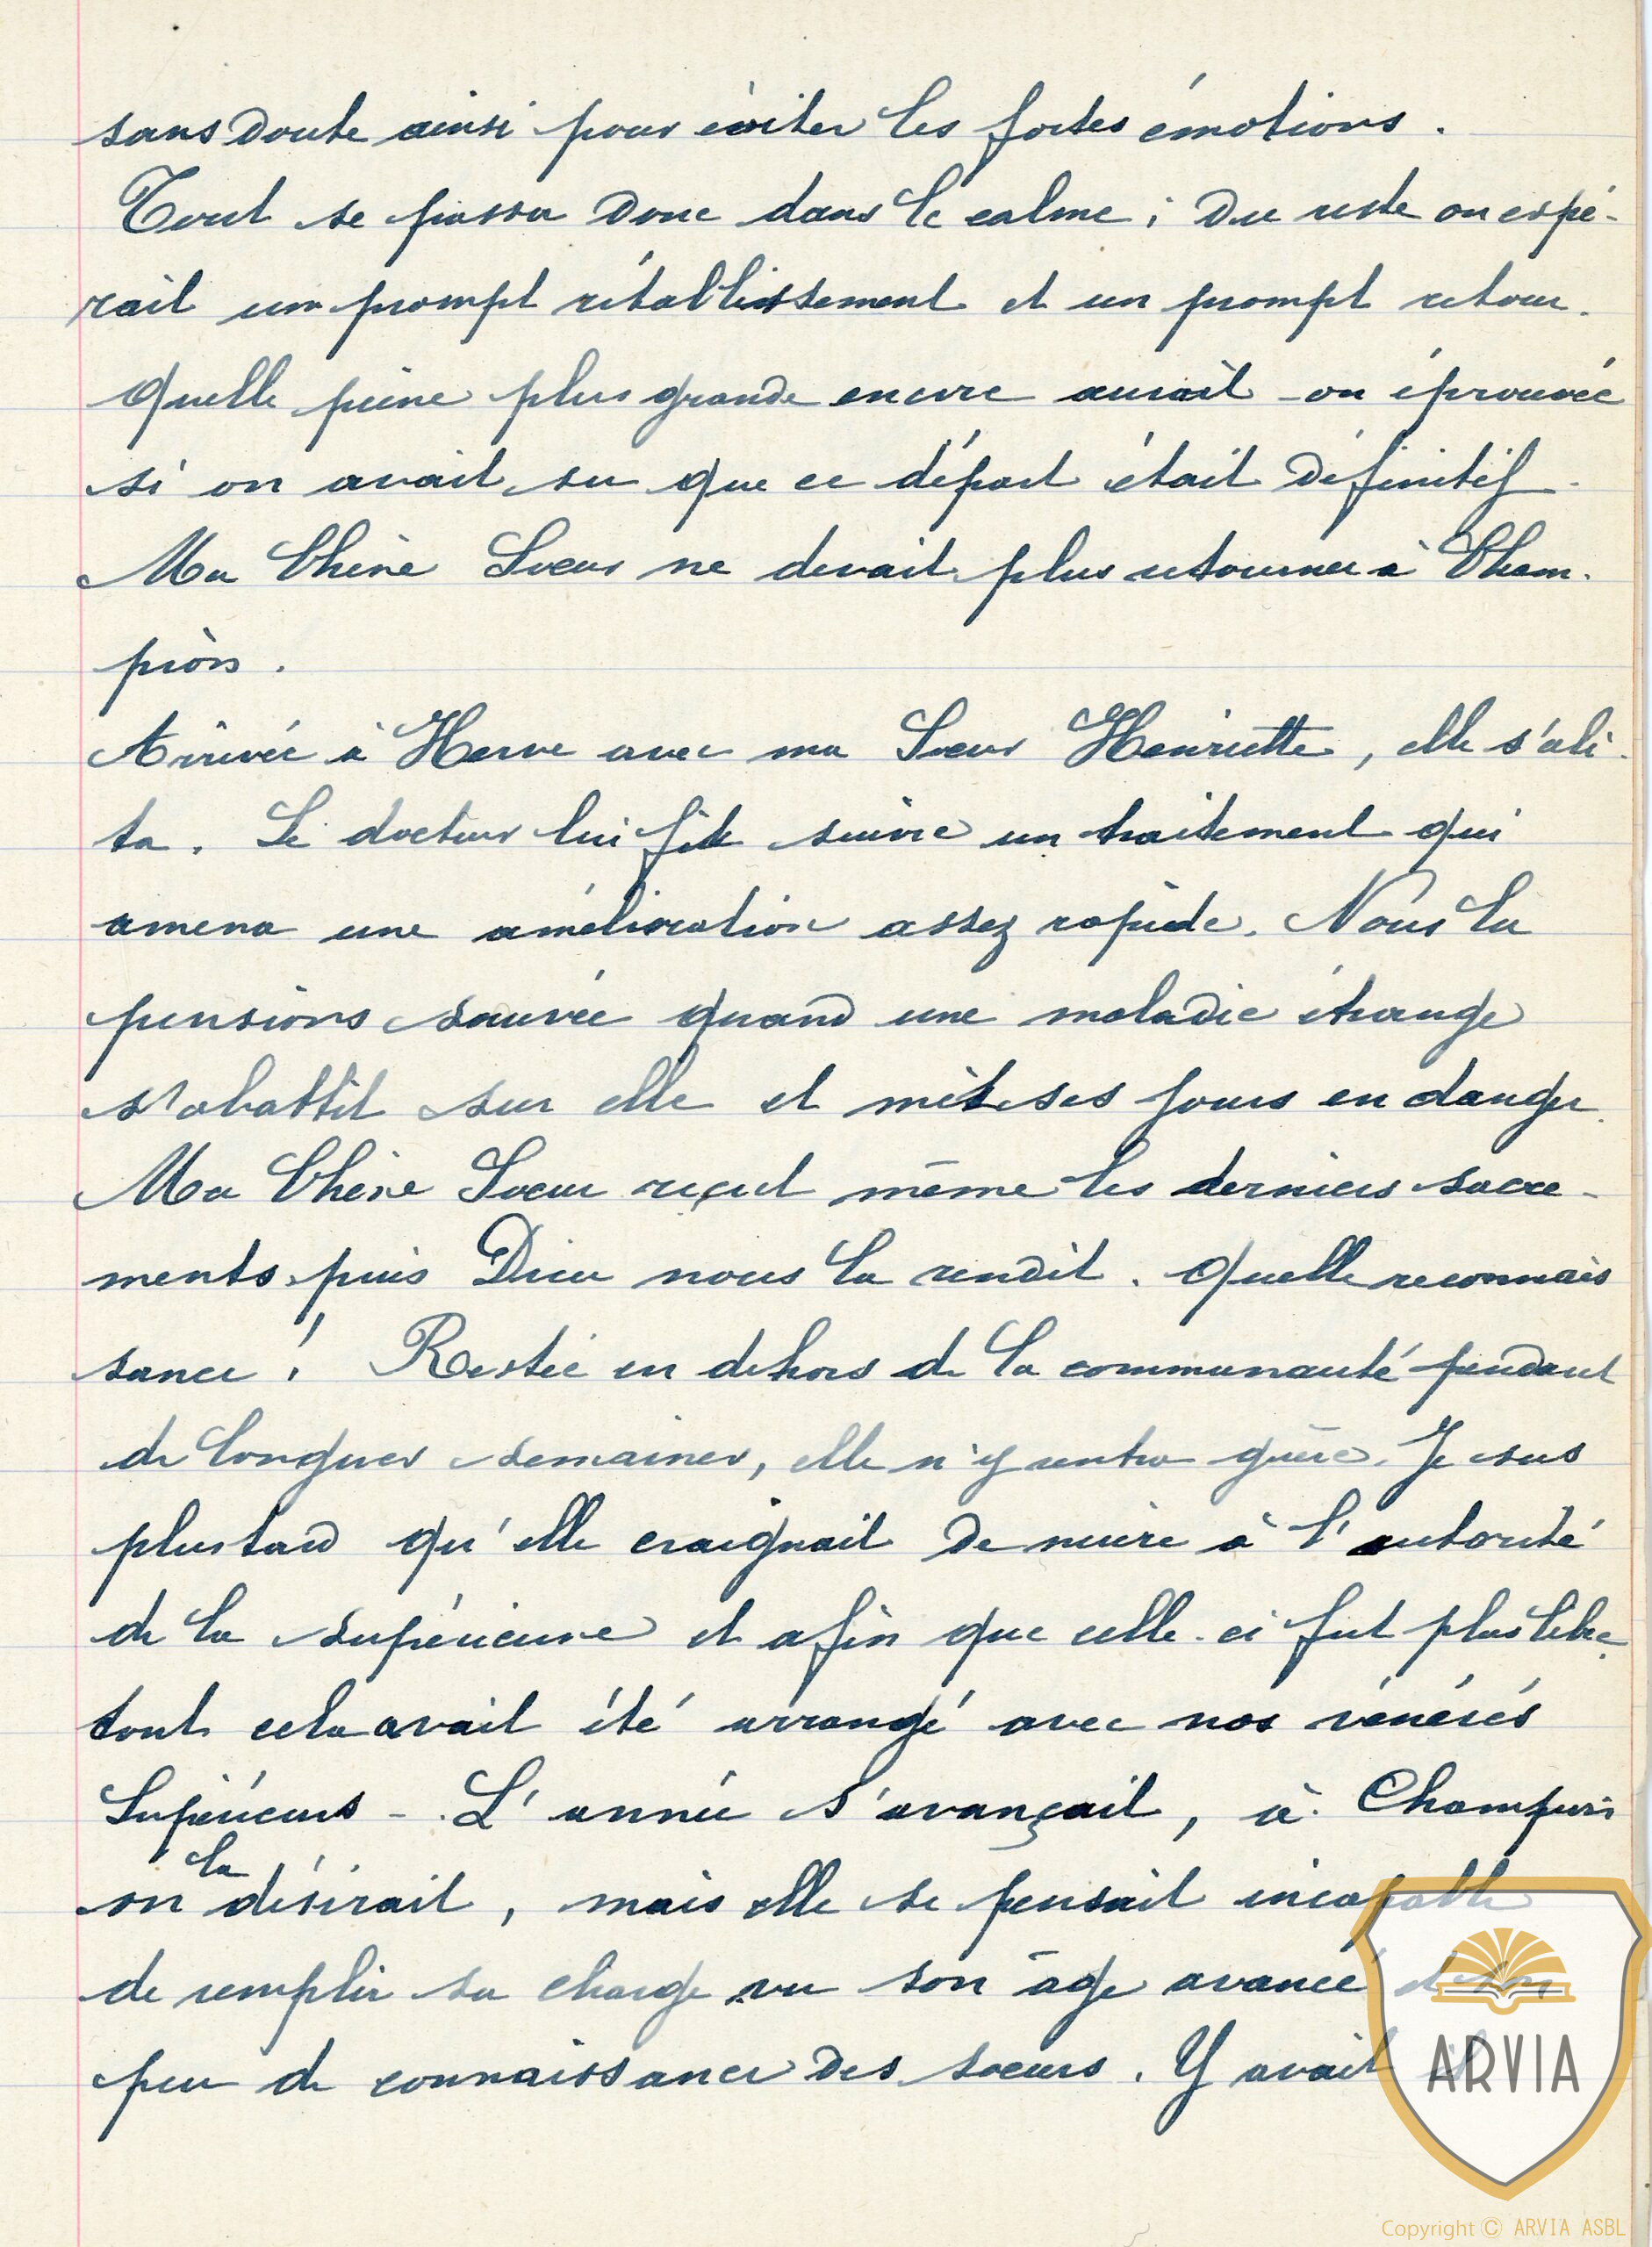 sans doute ainsi pour éviter les fortes émotions.
Tout se passa donc dans le calme ; du reste on espé-
rait un prompt rétablissement et un prompt retour.
Quelle peine plus grande encore aurait-on éprouvée
si on avait su que ce départ était définitif.
Ma Chère Soeur ne devait plus retourner à Cham-
pion.
Arrivée à Herve avec ma Soeur Henriette, elle s'ali-
ta. Le docteur lui fit suivre un traitement qui
amena une amélioration assez rapide. Nous la
pensions sauvée quand une maladie étrange
s'abattit sur elle et mit ses jours en danger.
Ma Chère Soeur reçut même les derniers sacre-
ments puis Dieu nous la rendit. Quelle reconnais
sance ! Restée en dehors de la communauté pendant
de longues semaines, elle n'y rentra guère. Je sus
plus tard qu'elle craignait de nuire à l'autorité
de la supérieure et afin que celle-ci fut plus libre,
tout cela avait été arrangé avec nos vénérés
Supérieurs - L'année s'avançait, à Champion
la
on désirait, mais elle se pensait incapable
de remplir sa charge vu son âge avancé et son
peu de connaissance des soeurs. Y avait il
ARVIA
Copyright © ARVIA ASBL